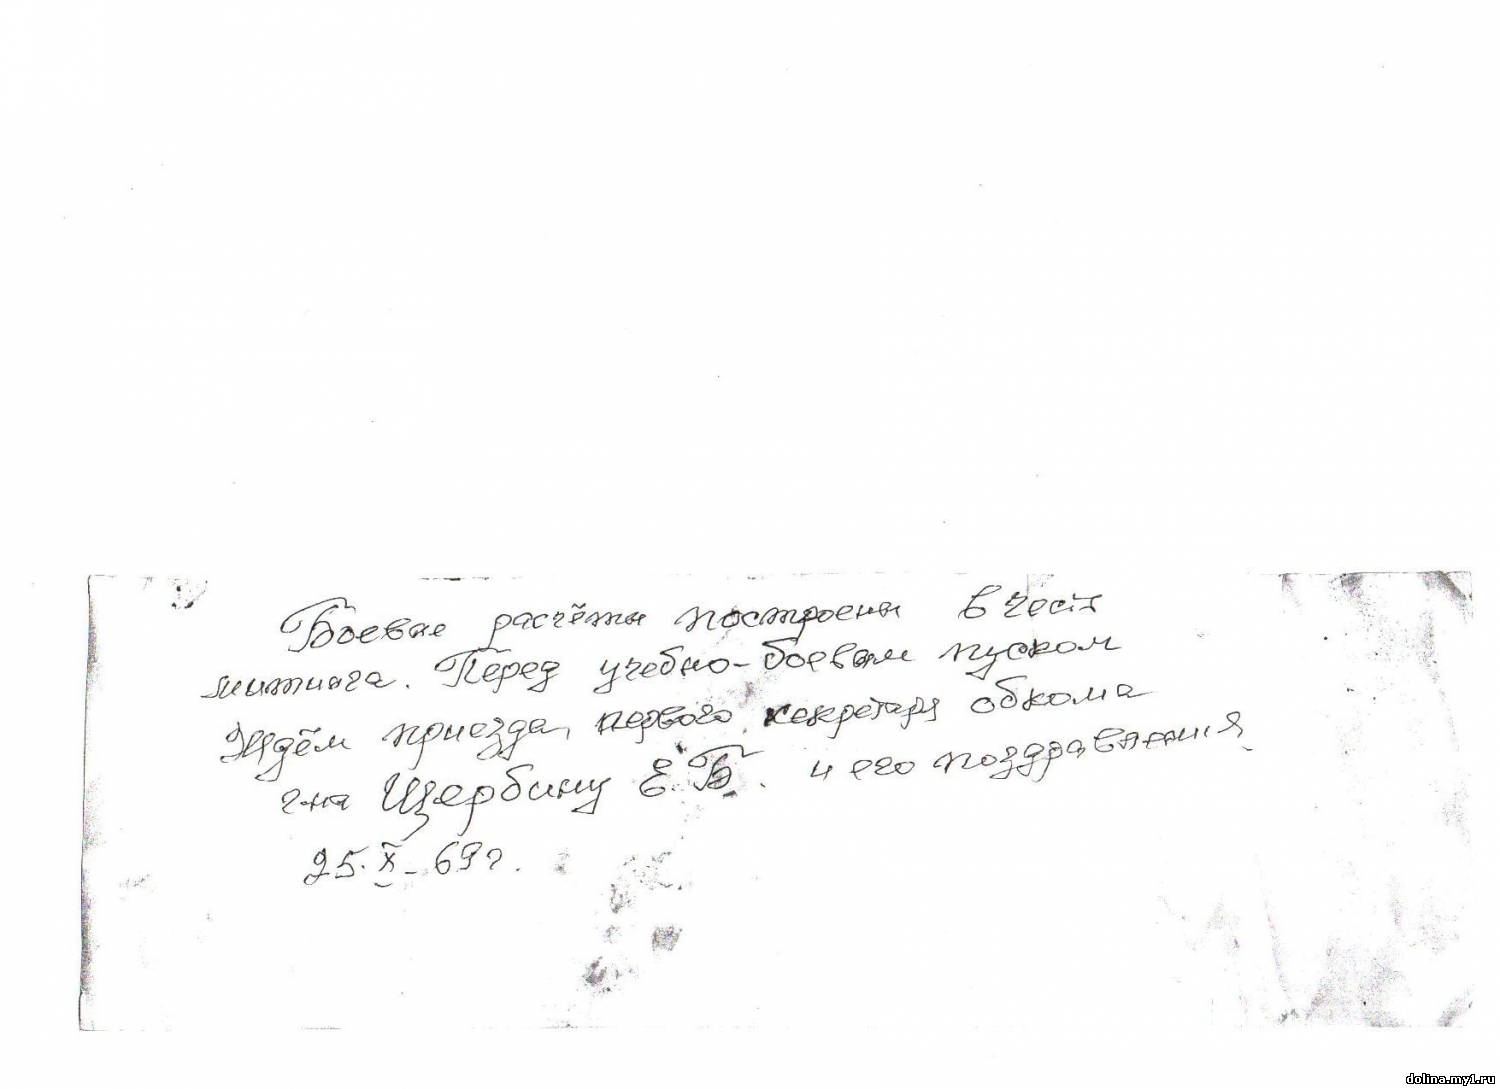 Боевые расчёты построены в честь
митинга. Перед учебно-боевым пуском
Ждём приезда, первого секретаря обкома
г-на Щербину Е.Б. и его поздравления
25.X-69г.
dolina.my1.ru